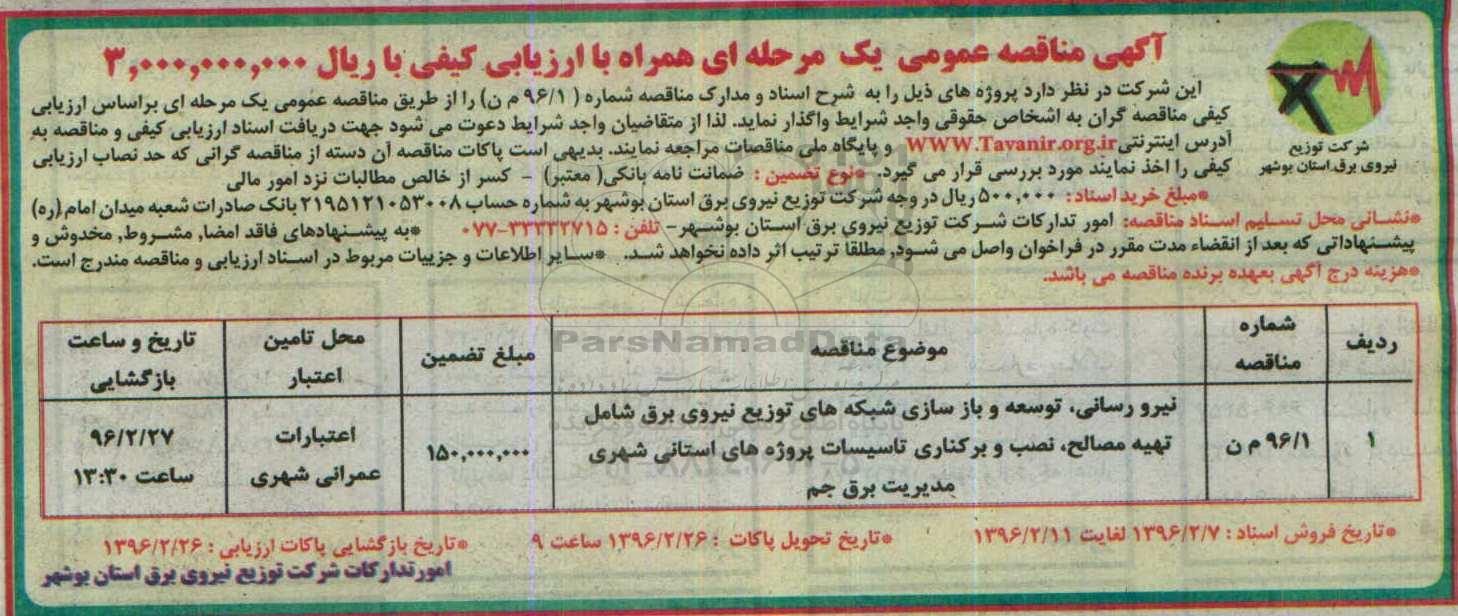 آگهی مناقصه عمومی یک مرحله ای همراه با ارزیابی کیفی با ریال ۳,۰۰۰,۰۰۰,۰۰۰
این شرکت در نظر دارد پروژه های ذیل را به شرح اسناد و مدارک مناقصه شماره ( ۹۶/۱ م ن) را از طریق مناقصه عمومی یک مرحله ای براساس ارزیابی
کیفی مناقصه گران به اشخاص حقوقی واجد شرایط واگذار نماید. لذا از متقاضیان واجد شرایط دعوت می شود جهت دریافت اسناد ارزیابی کیفی و مناقصه به
آدرس اینترنتی WWW.Tavanir.org.ir و پایگاه ملی مناقصات مراجعه نمایند. بدیهی است پاکات مناقصه آن دسته از مناقصه گرانی که حد نصاب ارزیابی
کیفی را اخذ نمایند مورد بررسی قرار می گیرد. *نوع تضمین : ضمانت نامه بانکی( معتبر) - کسر از خالص مطالبات نزد امور مالی
شرکت توزیع
نیروی برق استان بوشهر
*مبلغ خرید اسناد: ۵۰۰,۰۰۰ ریال در وجه شرکت توزیع نیروی برق استان بوشهر به شماره حساب ۲۱۹۵۱۲۱۰۵۳۰۰۸ بانک صادرات شعبه میدان امام (ره)
*نشانی محل تسلیم اسناد مناقصه: امور تدارکات شرکت توزیع نیروی برق استان بوشهر- تلفن : ۳۳۳۳۲۷۱۵-۰۷۷ *به پیشنهادهای فاقد امضا, مشروط, مخدوش و
پیشنهاداتی که بعد از انقضاء مدت مقرر در فراخوان واصل می شود, مطلقا ترتیب اثر داده نخواهد شد. *سایر اطلاعات و جزییات مربوط در اسناد ارزیابی و مناقصه مندرج است.
*هزینه درج آگهی بعهده برنده مناقصه می باشد.
ردیف شماره مناقصه موضوع مناقصه مبلغ تضمین محل تامین اعتبار تاریخ و ساعت بازگشایی
۱ ۹۶/۱ م ن نیرو رسانی، توسعه و باز سازی شبکه های توزیع نیروی برق شامل تهیه مصالح، نصب و برکناری تاسیسات پروژه های استانی شهری مدیریت برق جم ۱۵۰,۰۰۰,۰۰۰ اعتبارات عمرانی شهری ۹۶/۲/۲۷ ساعت ۱۳:۳۰
*تاریخ فروش اسناد : ۱۳۹۶/۲/۷ لغایت ۱۳۹۶/۲/۱۱ *تاریخ تحویل پاکات : ۱۳۹۶/۲/۲۶ ساعت ۹ *تاریخ بازگشایی پاکات ارزیابی : ۱۳۹۶/۲/۲۶
امور تدارکات شرکت توزیع نیروی برق استان بوشهر
ParsNamadData